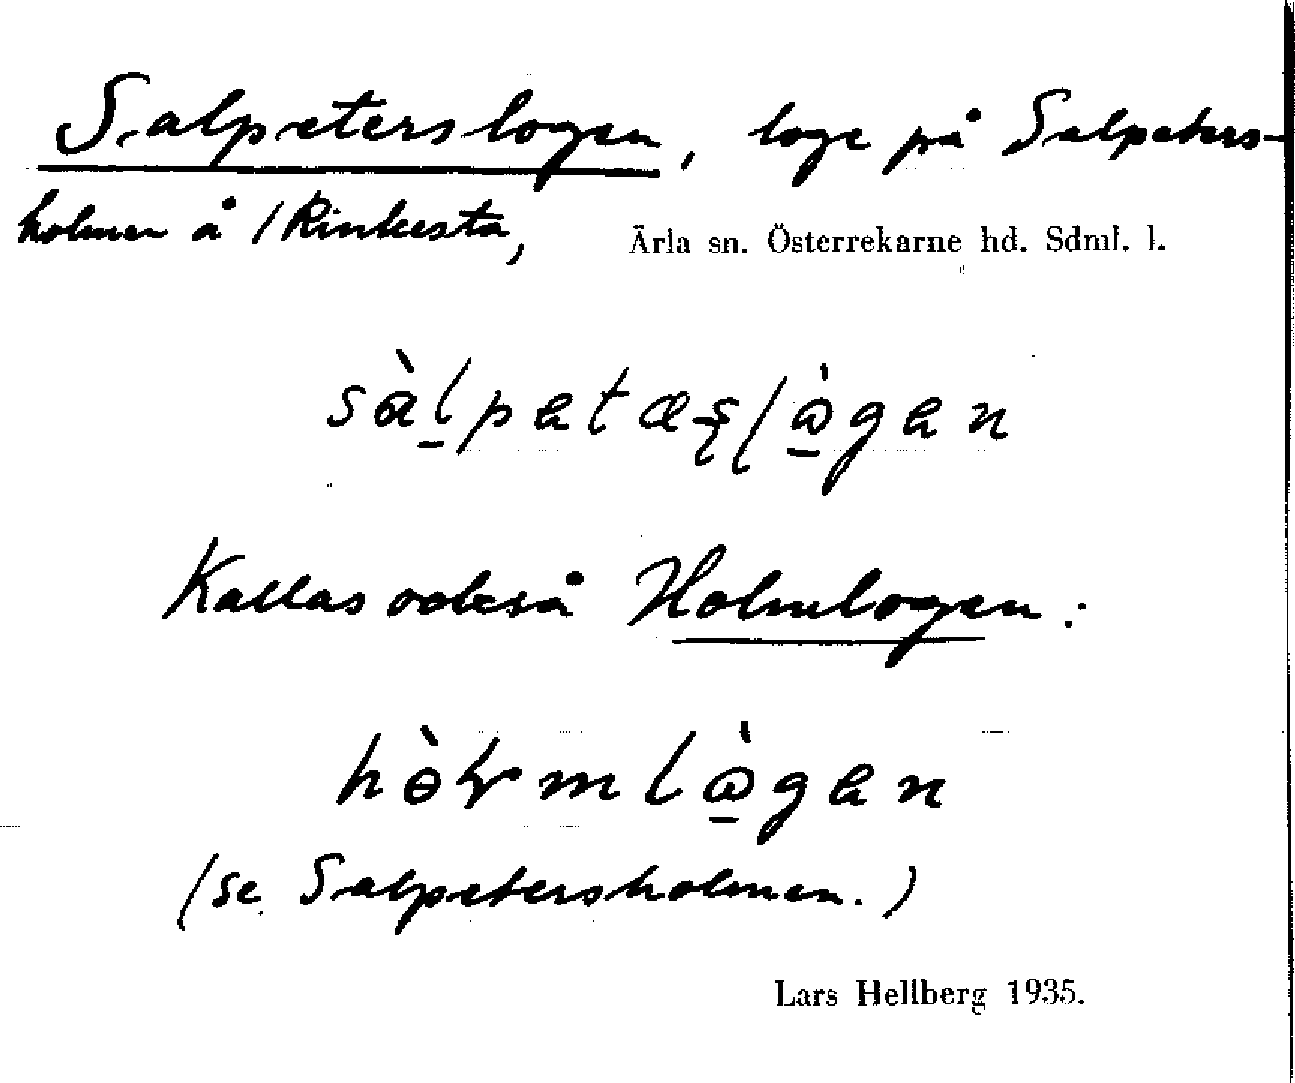 Salpeterslogen, loge på Salpeters-
holmen å /Rinkesta, Ärla sn. Österrekarne hd. Sdml. l.
Kallas också Holmlogen:
(se Salpetersholmen.)
Lars Hellberg 1935.